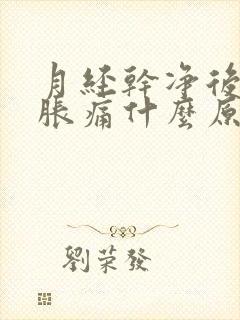 月经幹净後
脹痛什麼原
劉荣發